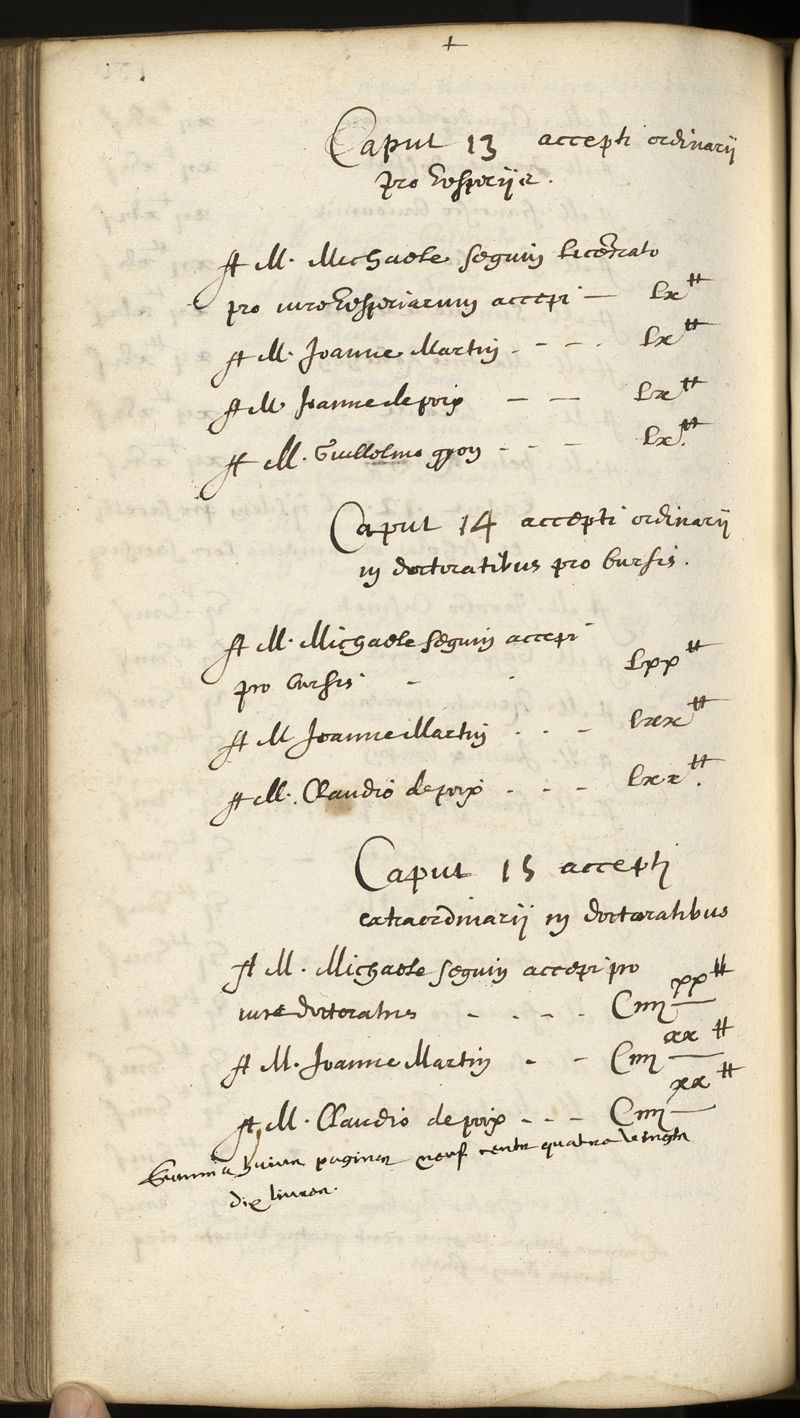 +
Caput 13 accepti ordinarij
pro vesperijs.
A M. Michaele Seguin licentiato
pro iure vesperiarum accepi — lx ₶
A M. Joanne Martin . - - . lx ₶
A M Joanne de poix — — lx ₶
A M. Guillelmo - - - lx ₶
Caput 14 accepti ordinarij
in doctoratibus pro bursis.
A M. Michaele Seguin accepi
pro bursis - . lxx ₶
A M Joanne Martin . . - lxx ₶
A M. Claudio de poix . - - lxx ₶.
Caput 15 accepti
extraordinarij in doctoratibus
A M. Michaele Seguin accepi pro
iure doctoratus - . - . Ciiii xx ₶
A M. Joanne Martin - - Ciiii xx ₶
A M. Claudio de poix - - - Ciiii xx ₶
Summa huius paginae neuf centz quatre vingtz
dix livres.